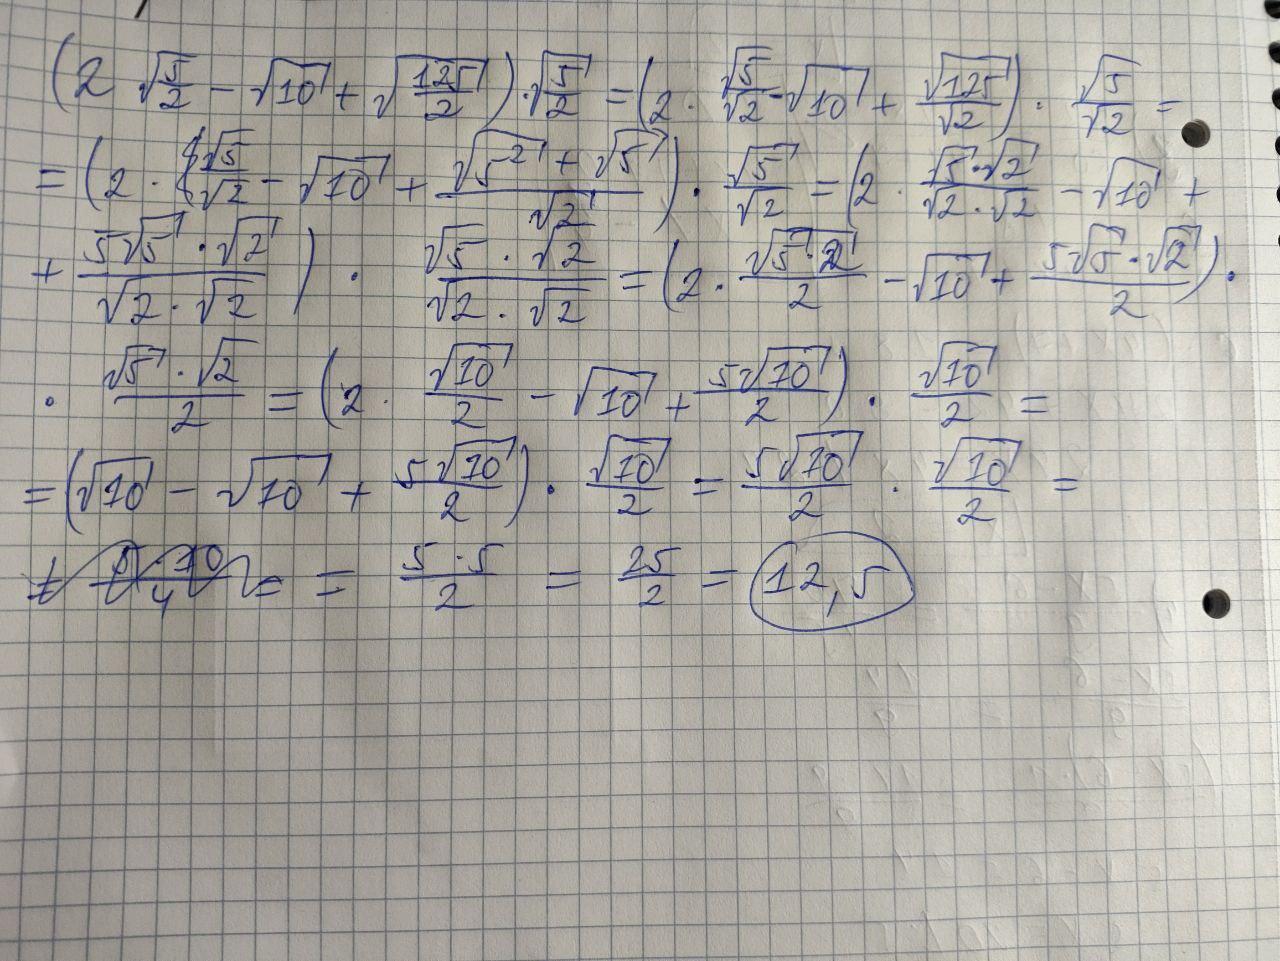 (2 √(5/2) − √10 + √(125/2)) · √(5/2) = (2 · √5/√2 − √10 + √125/√2) · √5/√2 =
= (2 · √5/√2 − √10 + (√5² + √5)/√2) · √5/√2 = (2 · (√5 · √2)/(√2 · √2) − √10 +
+ (5√5 · √2)/(√2 · √2)) · (√5 · √2)/(√2 · √2) = (2 · √(5 · 2)/2 − √10 + (5√5 · √2)/2) ·
· (√5 · √2)/2 = (2 · √10/2 − √10 + 5√10/2) · √10/2 =
= (√10 − √10 + 5√10/2) · √10/2 = 5√10/2 · √10/2 =
= (5 · 5)/2 = 25/2 = 12,5